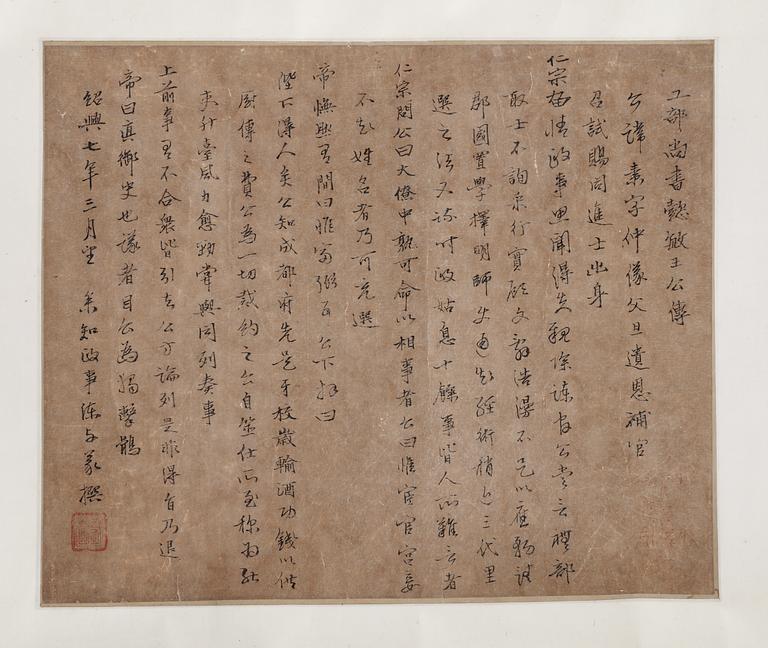 工部尚書懿敏王公傳
公諱素字仲儀父旦遺恩補官
召試賜同進士出身
仁宗留情政事思聞得失親除諫官公嘗言禮部
取士不詢采行實顧文辭浩漫不足以應務請
郡國置學擇明師以通知經術稍近三代里
選之法又論時政姑息十餘事皆人所難言者
仁宗問公曰大僚中孰可命以相事者公曰惟宦官宮妾
不知姓名者乃可充選
帝憮然有間曰惟富弼耳公下拜曰
陛下得人矣公知成都府先是牙校歲輸酒功錢以供
廚傳之費公為一切裁約之公自筮仕所至稱為能
吏升臺風力愈勁嘗與同列奏事
上前事有不合衆皆引去公方論列是非得旨乃退
帝曰真御史也議者目公為獨擊鶻
紹興七年三月望 參知政事陳与義撰